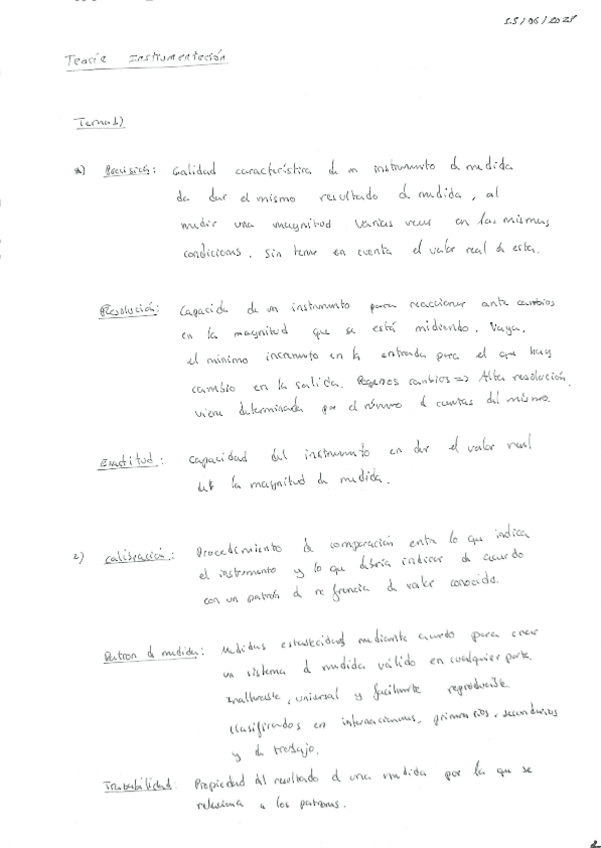 15/06/2023
Teoría Instrumentación
Tema 1)
1) Precisión: Calidad característica de un instrumento de medida
da dar el mismo resultado d medida, al
medir una magnitud varias veces en las mismas
condiciones. Sin tener en cuenta el valor real de esta.
Resolución: Capacida de un instrumento para reaccionar ante cambios
en la magnitud que se está midiendo. Vaya,
el mínimo incremento en la entrada para el que hay
cambio en la salida. Pequeños cambios => Alta resolución
viene determinada por el número d cuentas del mismo.
Exactitud: Capacidad del instrumento en dar el valor real
de la magnitud de medida.
2) Calibración: Procedimiento de comparación entre lo que indica
el instrumento y lo que debría indicar de acuerdo
con un patrón d referencia d valor conocido.
Patron d medida: Medidas establecidas mediante acuerdo para crear
un sistema d medida válido en cualquier parte.
Inalterable, universal y facilmente reproducible
Clasificados en internacionales, primarios, secundarios
y de trabajo.
Trazabilidad: Propiedad del resultado d una medida por la que se
relaciona a los patrones.